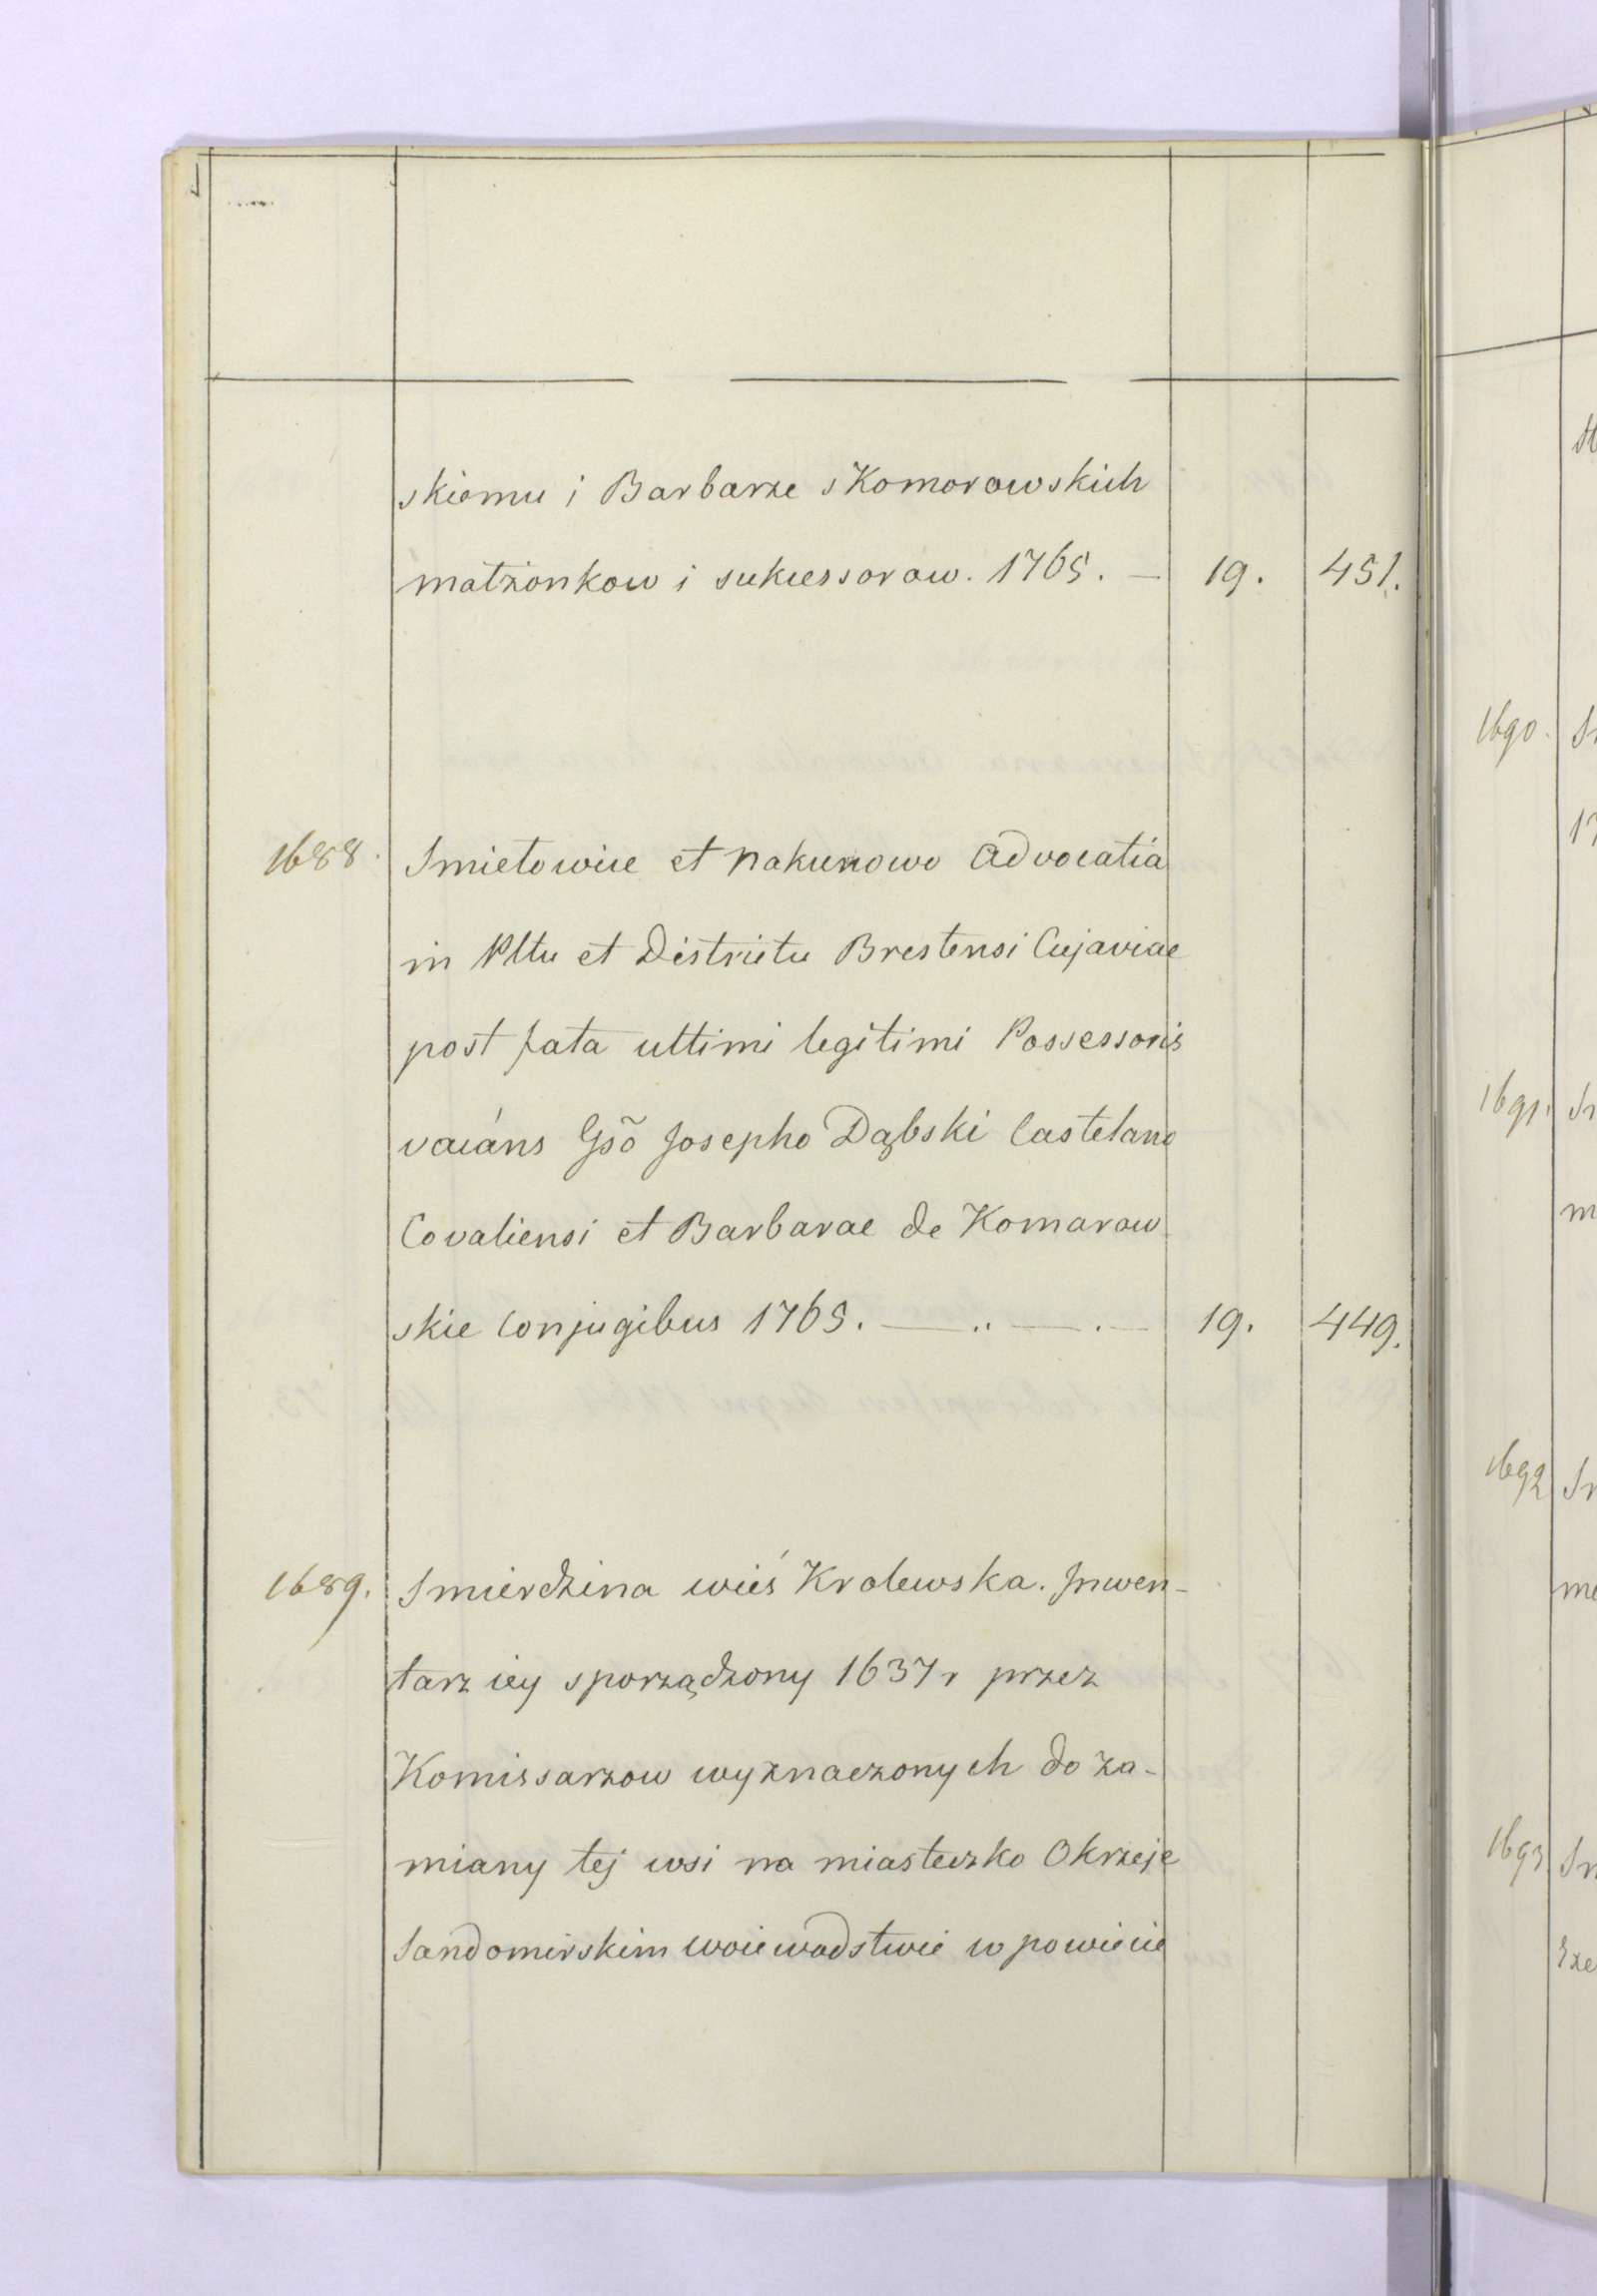 skiemu i Barbarze sKomorowskich
małżonkow i sukcessorow. 1765. — 19. 451.
1688. Smietowice et Nakunowo Advocatia
in Pltu et Districtu Brestensi Cujaviae
post fata ultimi legitimi Possessoris
vacáns Gsõ Josepho Dąbski Castelano
Covaliensi et Barbarae de Komarow
skie Conjugibus 1765. — .. — . — 19. 449.
1689. Smierdzina wieś Krolewska. Inwen-
tarz iey sporządzony 1637 r przez
Komissarzow wyznaczonych do za-
miany tej wsi na miasteczko Okrzeje
Sandomirskim woiewodstwie w powiecie
1690.
1691.
1692
1693